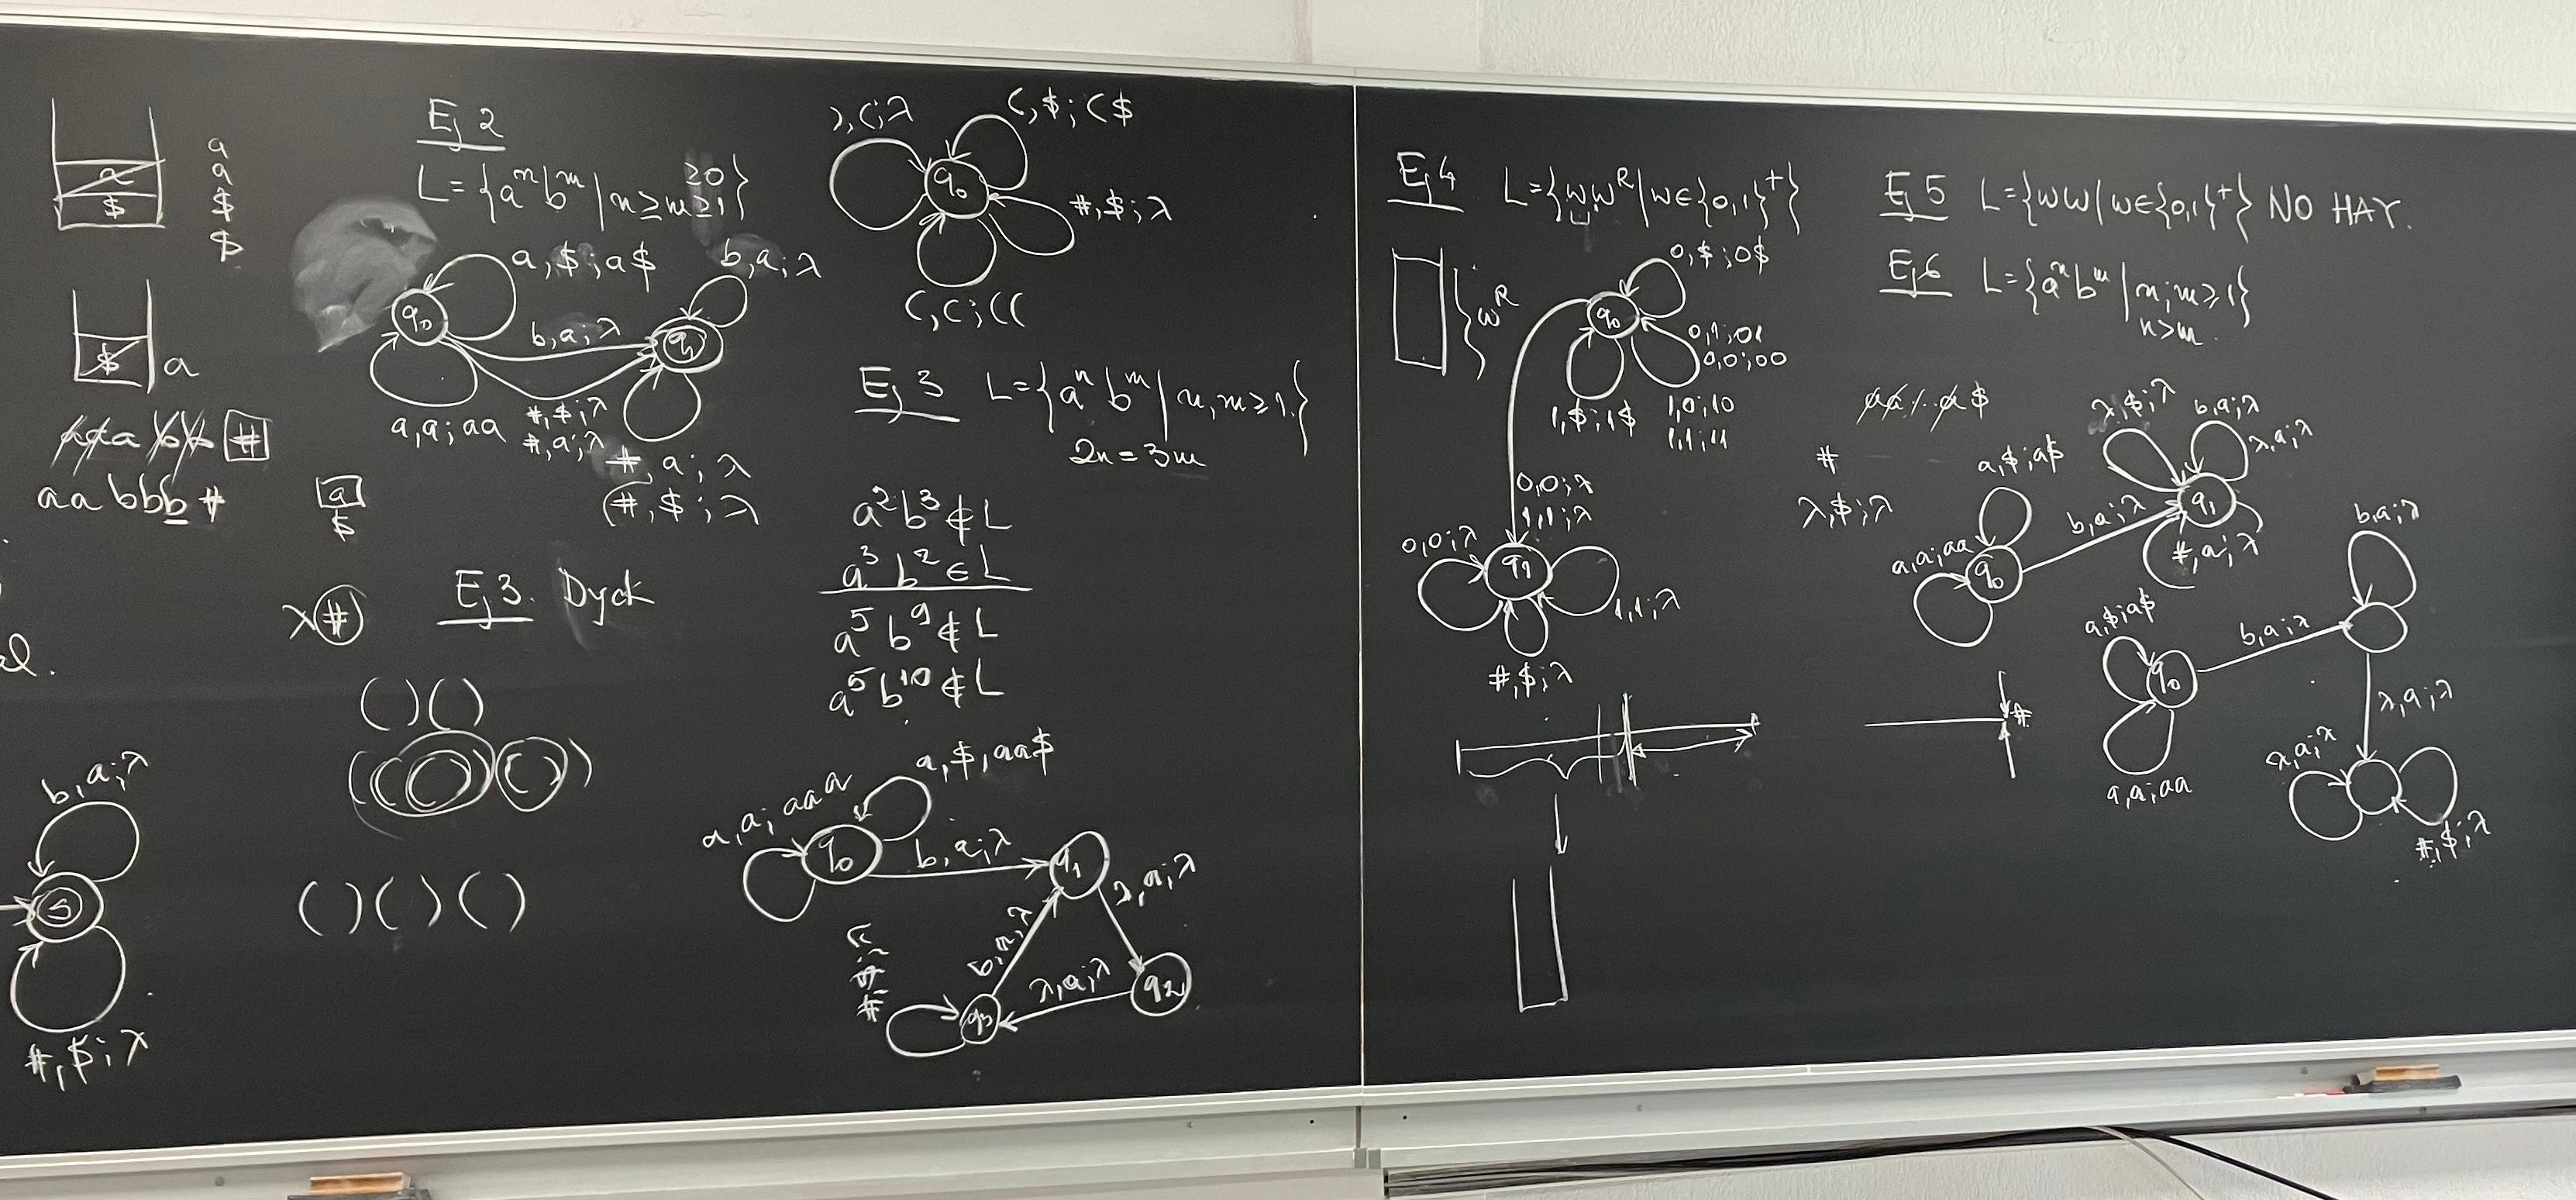 a
a
$
$
a
$
$
a
aaabb#
aabbb#
a
$
al.
b,a;λ
S
#,$;λ
Ej 2
L={aⁿbᵐ|n≥m≥1}
≥0
a,$;a$
b,a;λ
q₀
b,a;λ
q₁
a,a;aa
#,$;λ
#,a;λ
#,a;λ
(#,$;λ
λ#
Ej 3. Dyck
()()
(())()
()()()
),(;λ
(,$;($
q₀
#,$;λ
(,(;((
Ej 3 L={aⁿbᵐ|n,m≥1}
2n=3m
a²b³∉L
a³b²∈L
a⁵b⁹∉L
a⁵b¹⁰∉L
a,a;aaa
a,$,aa$
q₀
b,a;λ
q₁
λ,a;λ
b,a;λ
λ,a;λ
q₂
q₃
Ej 4 L={wwᴿ|w∈{0,1}⁺}
wᴿ
0,$;0$
q₀
0,1;01
0,0;00
1,$;1$
1,0;10
1,1;11
0,0;λ
1,1;λ
0,0;λ
q₁
1,1;λ
#,$;λ
Ej 5 L={ww|w∈{0,1}⁺} NO HAY.
Ej 6 L={aⁿbᵐ|n;m≥1}
n>m.
aa...a$
#
λ,$;λ
λ,$;λ
b,a;λ
λ,a;λ
a,$;a$
b,a;λ
q₁
a,a;aa
q₀
#,a;λ
b,a;λ
a,$;a$
b,a;λ
q₀
a,a;aa
#
λ,a;λ
λ,a;λ
#,$;λ